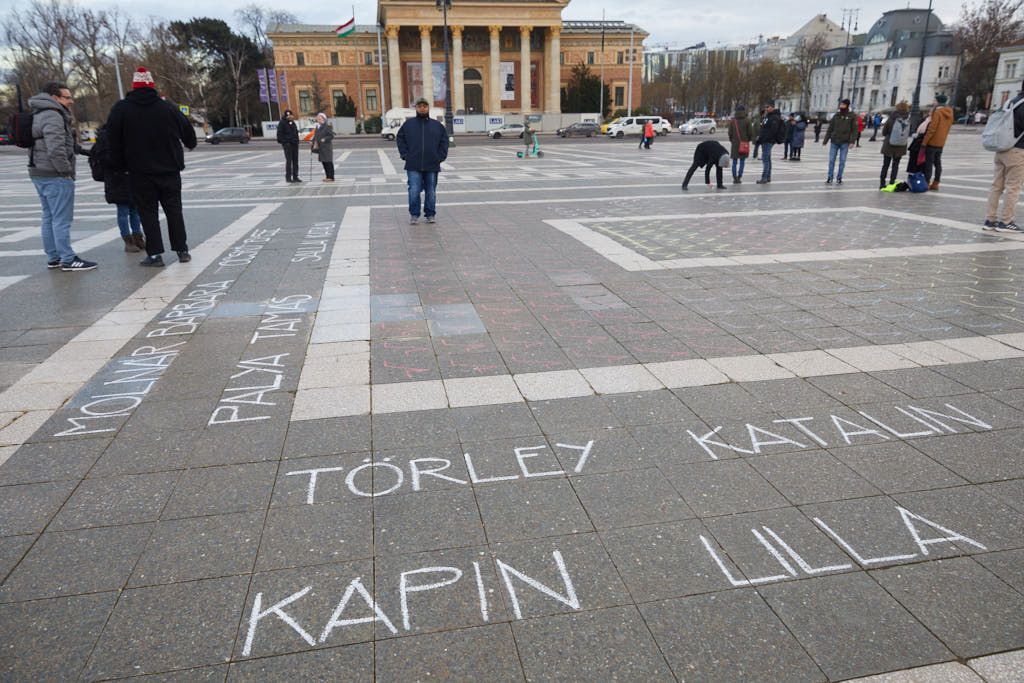 SALLAI
MOLNÁR BARBARA
PALYA TAMÁS
TÖRLEY KATALIN
KAPIN LILLA